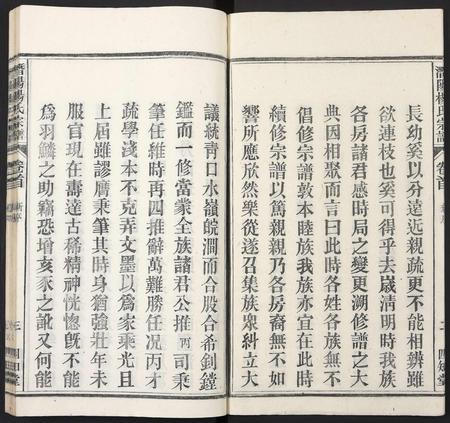 長幼奚以分遠近親疏更不能相辨雖
欲連枝也奚可得乎去歲清明時我族
各房諸君感時局之變更溯修譜之大
典因相聚而言曰此時各姓各族無不
倡修宗譜敦本睦族我族亦宜在此時
續修宗譜以篤親親乃各房裔無不如
響所應欣然樂從遂召集族衆糾立大
議統青口水嶺皖澗而合股合希釗鏜
鑑而一修當蒙全族諸君公推丙司乘
筆任維時再四推辭萬難勝任况丙才
疏學淺本不克弄文墨以爲家乘光且
上屆雖謬膺秉筆其時身猶強壯年未
服官現在壽達古稀精神恍惚旣不能
爲羽鱗之助竊恐增亥豕之訛又何能
楊氏宗譜
卷首